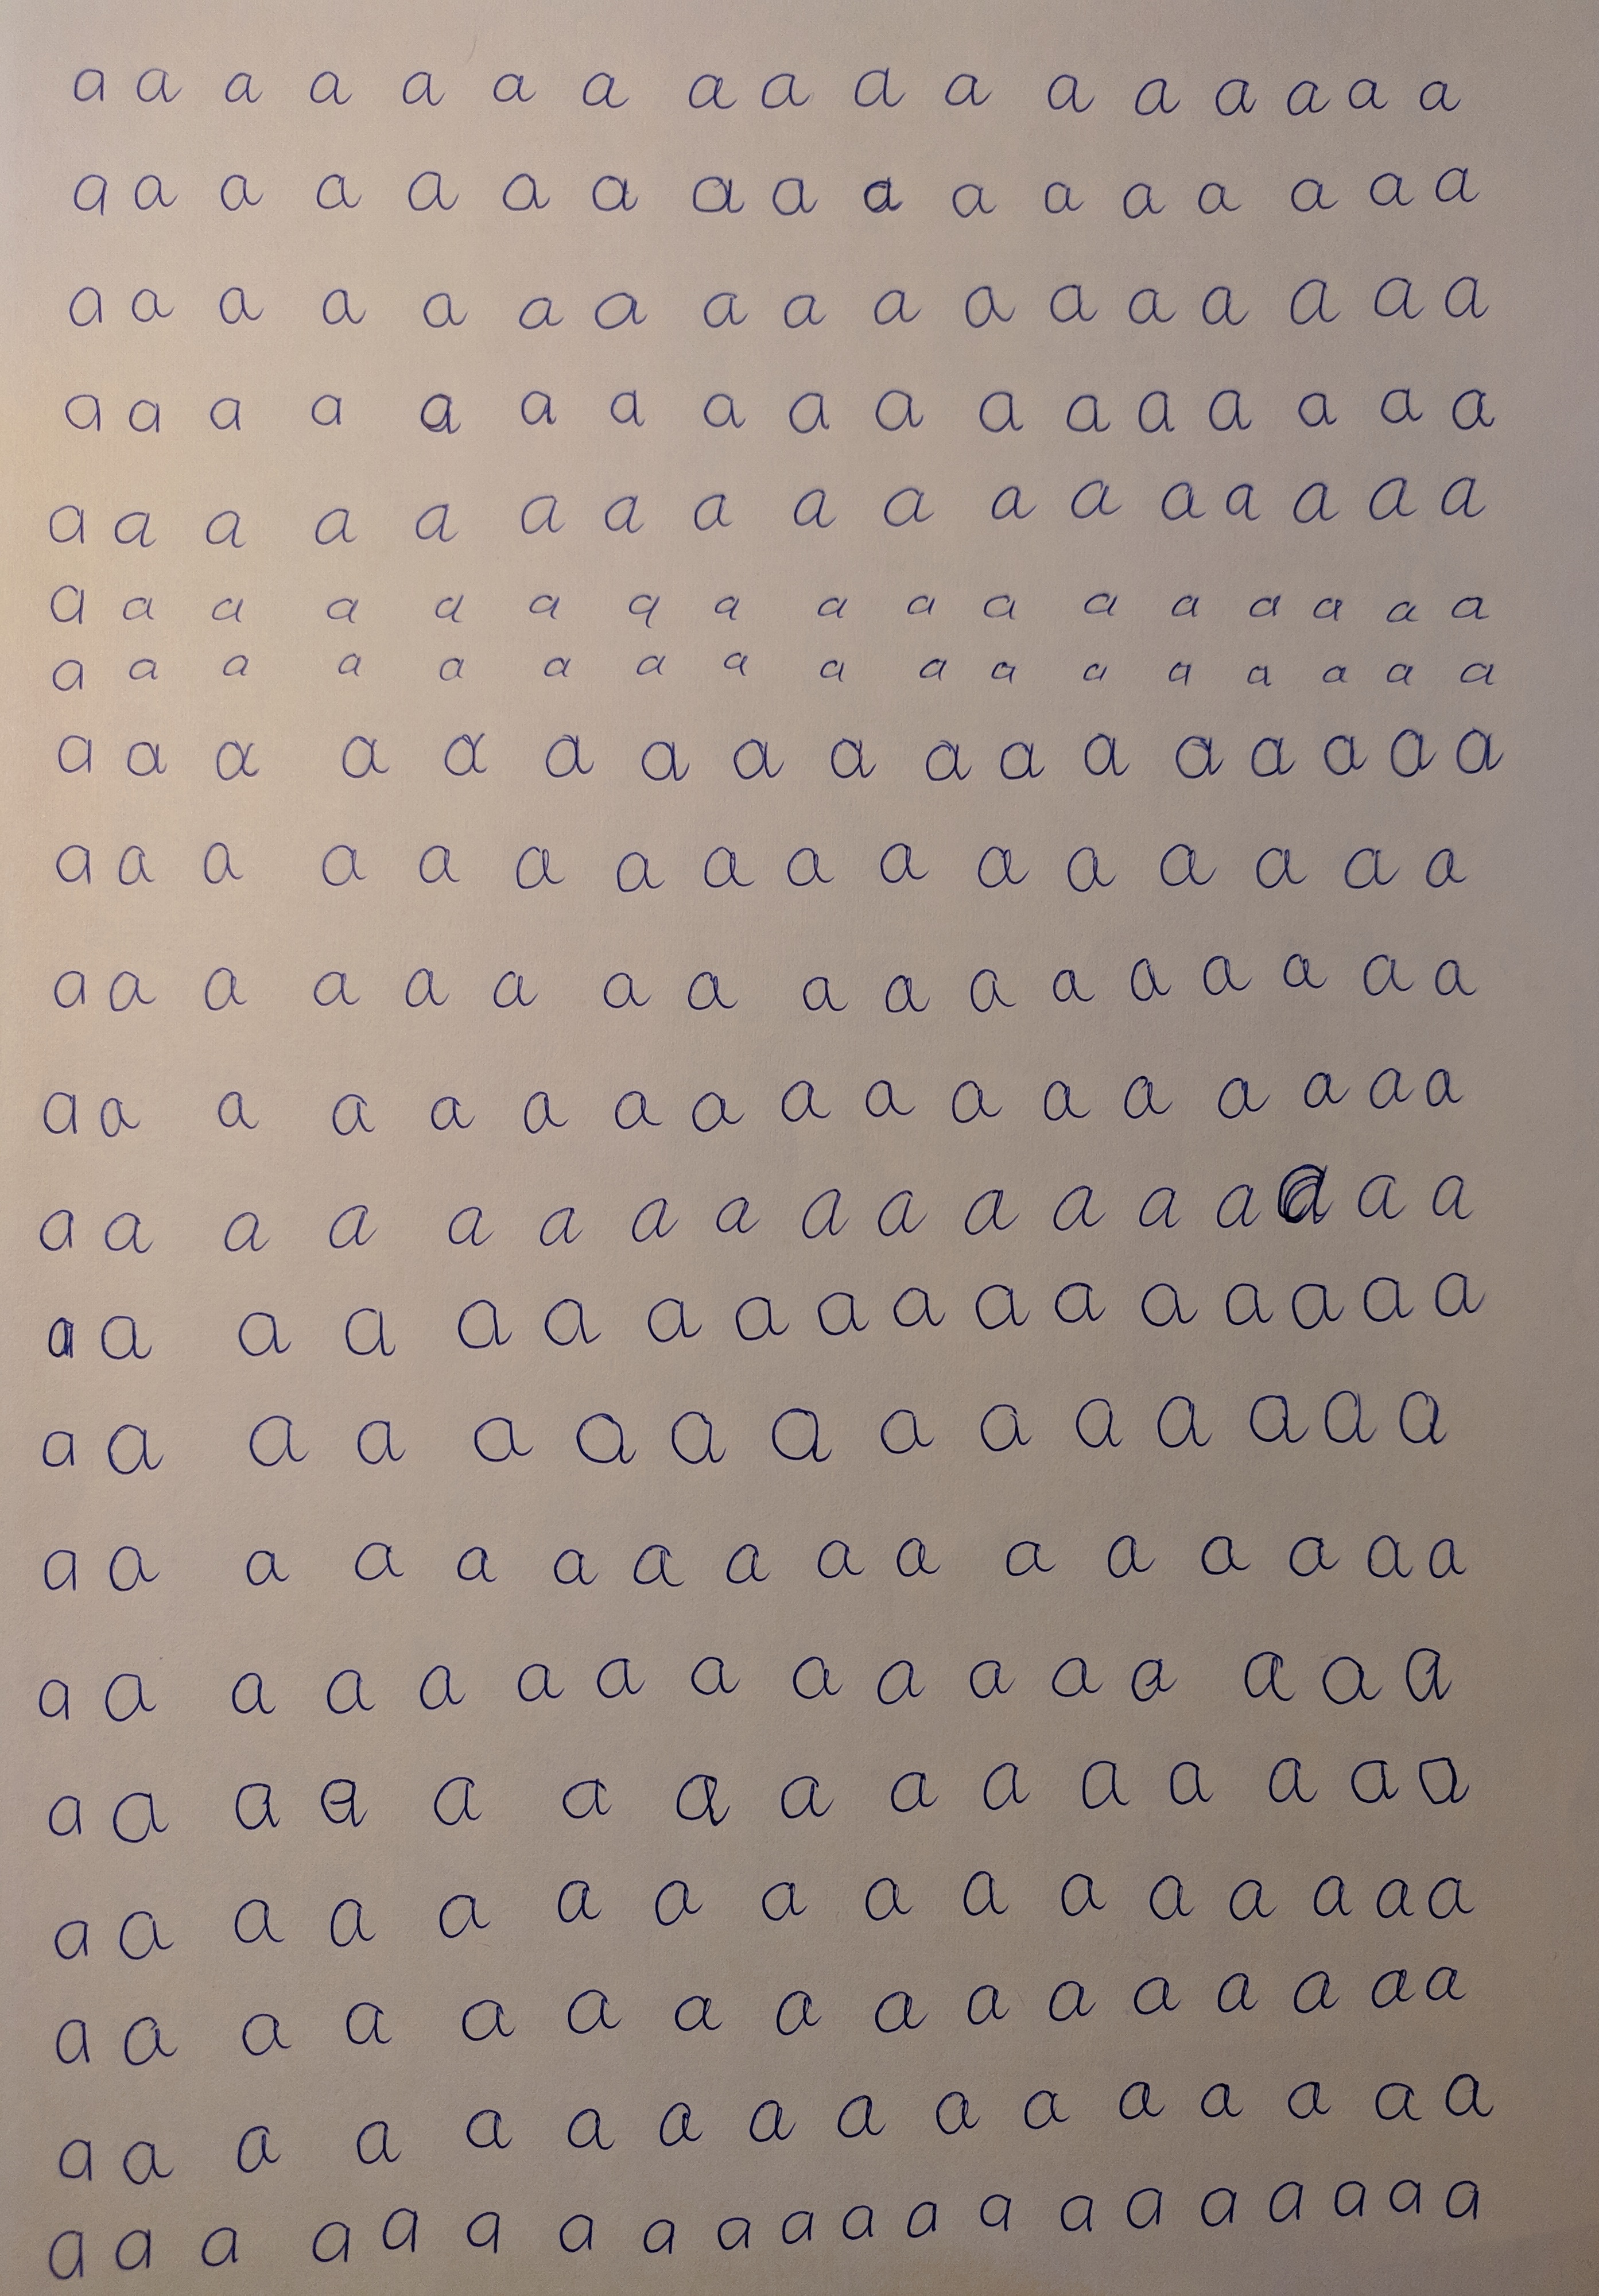 a a a a a a a a a a a a a a a a a
a a a a a a a a a a a a a a a a a
a a a a a a a a a a a a a a a a a
a a a a a a a a a a a a a a a a a
a a a a a a a a a a a a a a a a a
a a a a a a a a a a a a a a a a a
a a a a a a a a a a a a a a a a a
a a a a a a a a a a a a a a a a a
a a a a a a a a a a a a a a a a
a a a a a a a a a a a a a a a a a
a a a a a a a a a a a a a a a a a
a a a a a a a a a a a a a a a a a
a a a a a a a a a a a a a a a a a
a a a a a a a a a a a a a a a
a a a a a a a a a a a a a a a a
a a a a a a a a a a a a a a a a
a a a a a a a a a a a a a a a
a a a a a a a a a a a a a a a a
a a a a a a a a a a a a a a a a
a a a a a a a a a a a a a a a a
a a a a a a a a a a a a a a a a a a a a